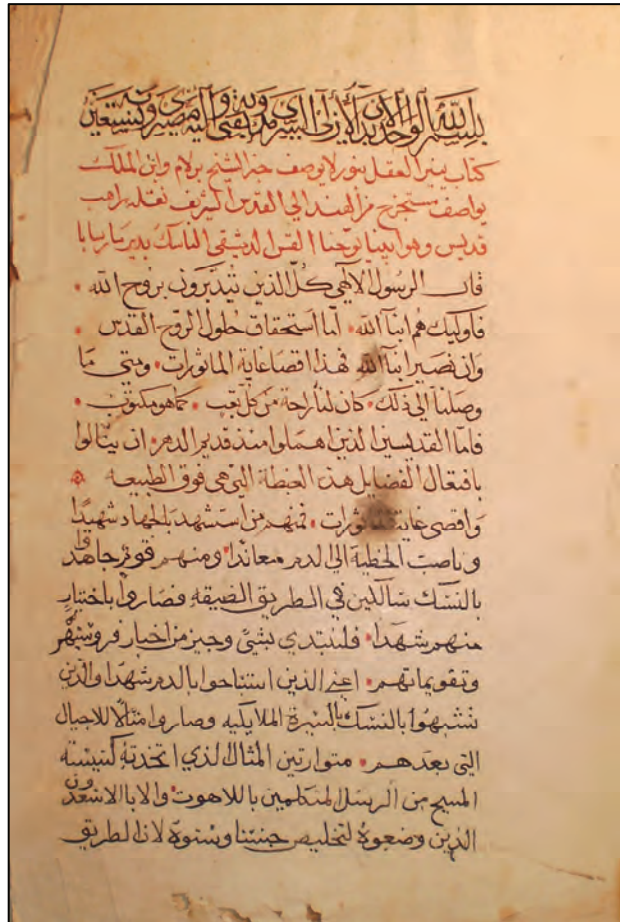 بسم الله الواحد الازلي السرمدي وبه نقتي واليه مصيري وبه نستعين
كتاب ينير العقل بنور لا يوصف خبر الشيخ برلام وابن الملك
يواصف مستخرج من الهند الي القدس الشريف نقله راهب
قديس وهو ابينا يوحنا القس الدمشقي الناسك بدير مار سابا
قال الرسول الالهي كل الذين يتدبرون بروح الله •
فاوليك هم ابنآ الله • اما استحقاق حلول الروح القدس •
وان نصير ابنآ الله فهذا اقصا غاية الماثورات • ومتي ما
وصلنا الي ذلك • كان لنا راحة من كل تعب • كما هو مكتوب •
فاما القديسين الذين اهملوا منذ قديم الدهر • ان ينالوا
بافتعال الفضايل هذه الغبطة التي هي فوق الطبيعه
واقصى غاية الماثورات • فمنهم من استشهد بالجهاد شهيدًا
وناصب الخطية الي الدم معاندًا • ومنهم قوم جاهدوا
بالنسك سالكين في الطريق الضيقه فصاروا باختيار
منهم شهدا • فلنبتدي بشئ وجيز من اخبار فروسيتهم
وتقويماتهم • اعني الذين استباحوا بالدم شهدا والذين
تشبهوا بالنسك بالسيرة الملايكيه وصاروا مثالًا للاجيال
التي بعدهم • متوارتين المثال الذي اتخذته كنيسته
المسيح من الرسل المتكلمين باللاهوت • والابا الاسعدون
الذين وضعوه لتخليص جنسنا وسنوه لان الطريق